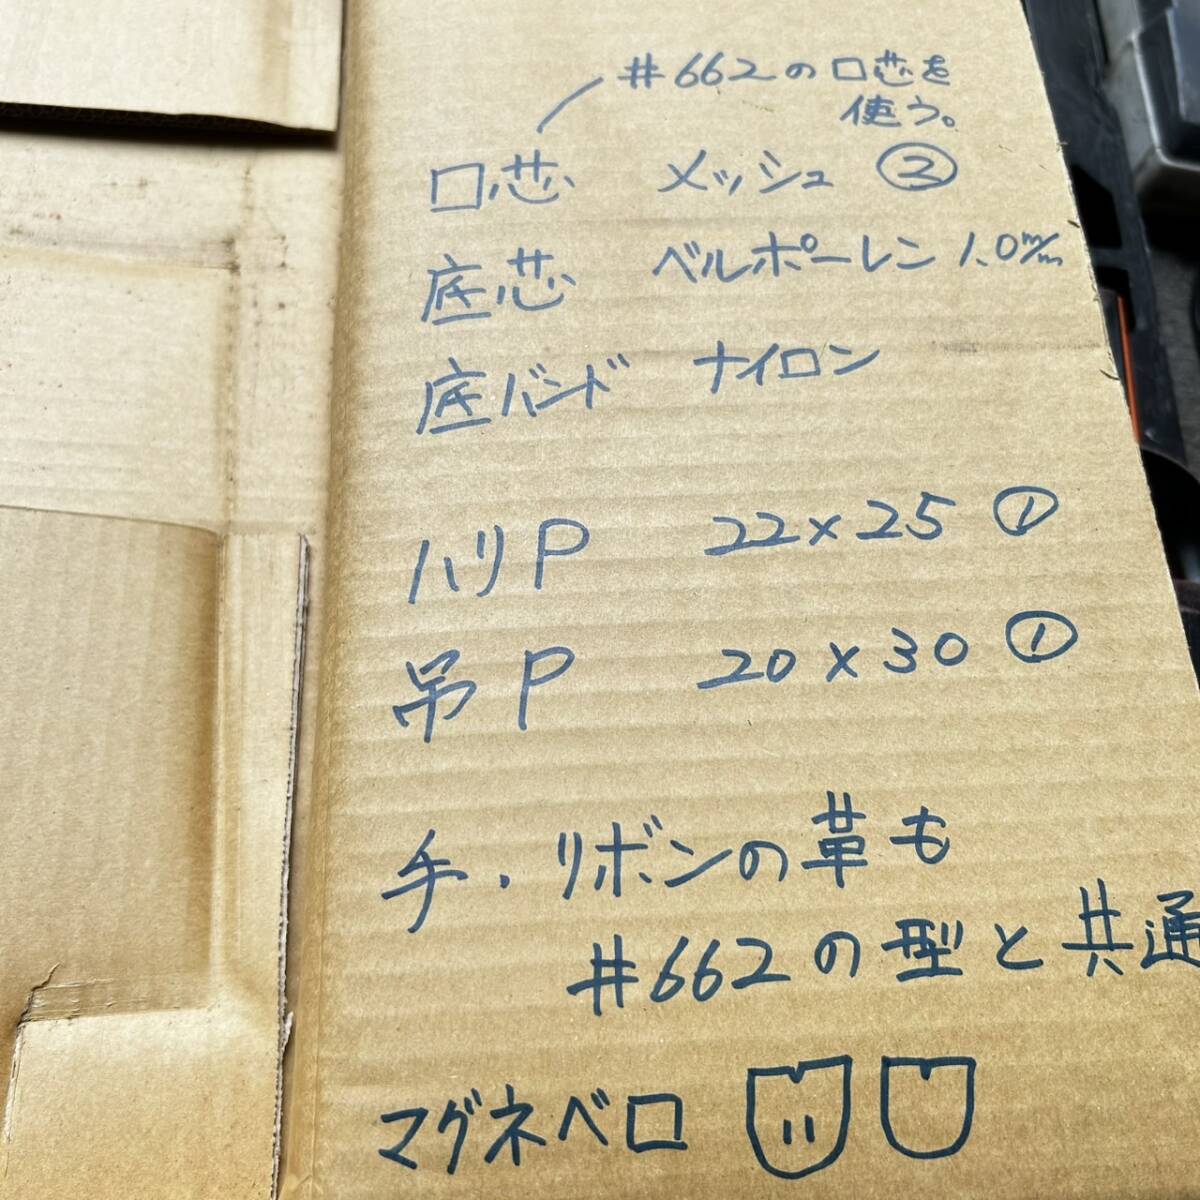 #662の口芯を
使う。
口芯 メッシュ ②
底芯 ベルポーレン 1.0m/m
底バンド ナイロン
ハリP 22×25 ①
吊P 20×30 ①
手・リボンの革も
#662の型と共通
マグネベロ